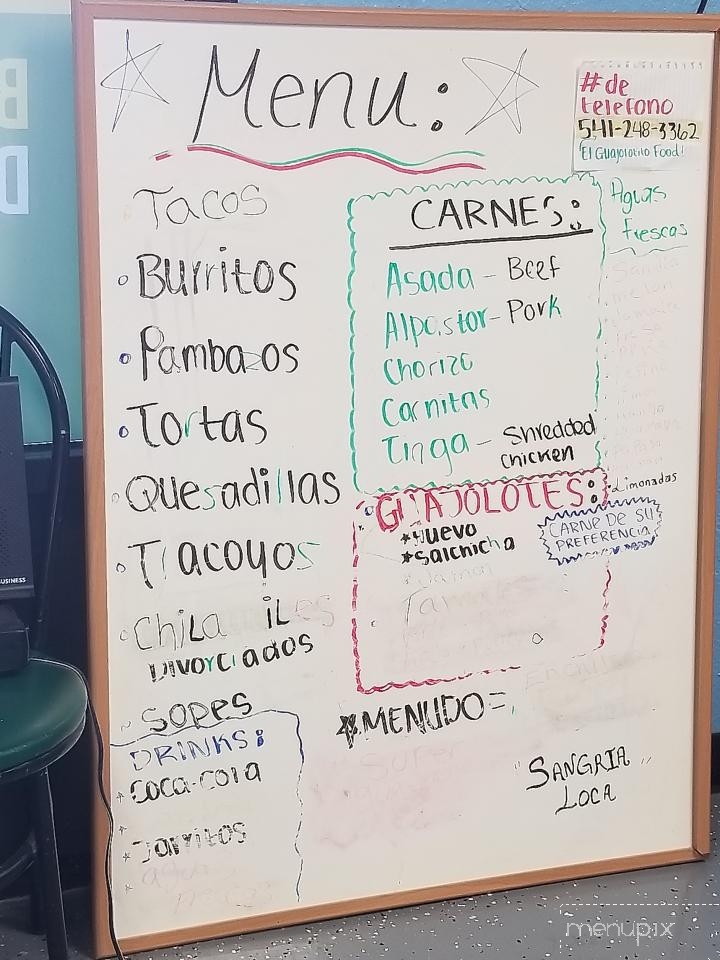 Menu:
#de
telefono
541-248-3362
"El Guajolotito Food"
Tacos
Burritos
Pambazos
Tortas
Quesadillas
Tlacoyos
Chila iL
Divorciados
Sopes
DRINKS:
Coca-cola
Jarritos
aguas
frescas
CARNES:
Asada - Beef
Alpastor - Pork
Chorizo
Carnitas
Tinga - Shredded
chicken
GUAJOLOTES:
*Huevo
*Salchicha
Jamon
CARNE DE SU
PREFERENCIA
*MENUDO=
Aguas
frescas
Sandia
melon
Limonadas
"SANGRIA
LOCA"
BUSINESS
menupix